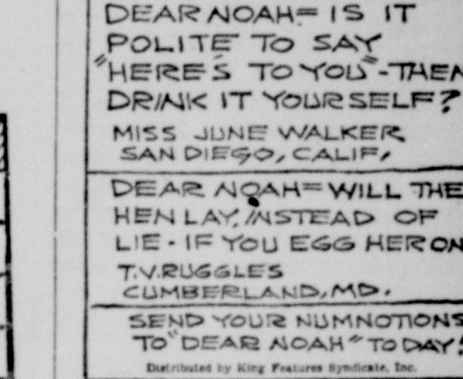 DEAR NOAH= IS IT
POLITE TO SAY
"HERE'S TO YOU"-THEN
DRINK IT YOURSELF?
MISS JUNE WALKER
SAN DIEGO, CALIF,
DEAR NOAH= WILL THE
HEN LAY, INSTEAD OF
LIE - IF YOU EGG HER ON
T.V.RUGGLES
CUMBERLAND, MD.
SEND YOUR NUMNOTIONS
TO "DEAR NOAH" TODAY!
Distributed by King Features Syndicate, Inc.